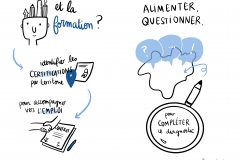 et la
formation ?
identifier les
CERTIFICATIONS
par territoire
pour accompagner
vers L'EMPLOI
ALIMENTER,
QUESTIONNER,
?
!
pour
COMPLÉTER
le diagnostic